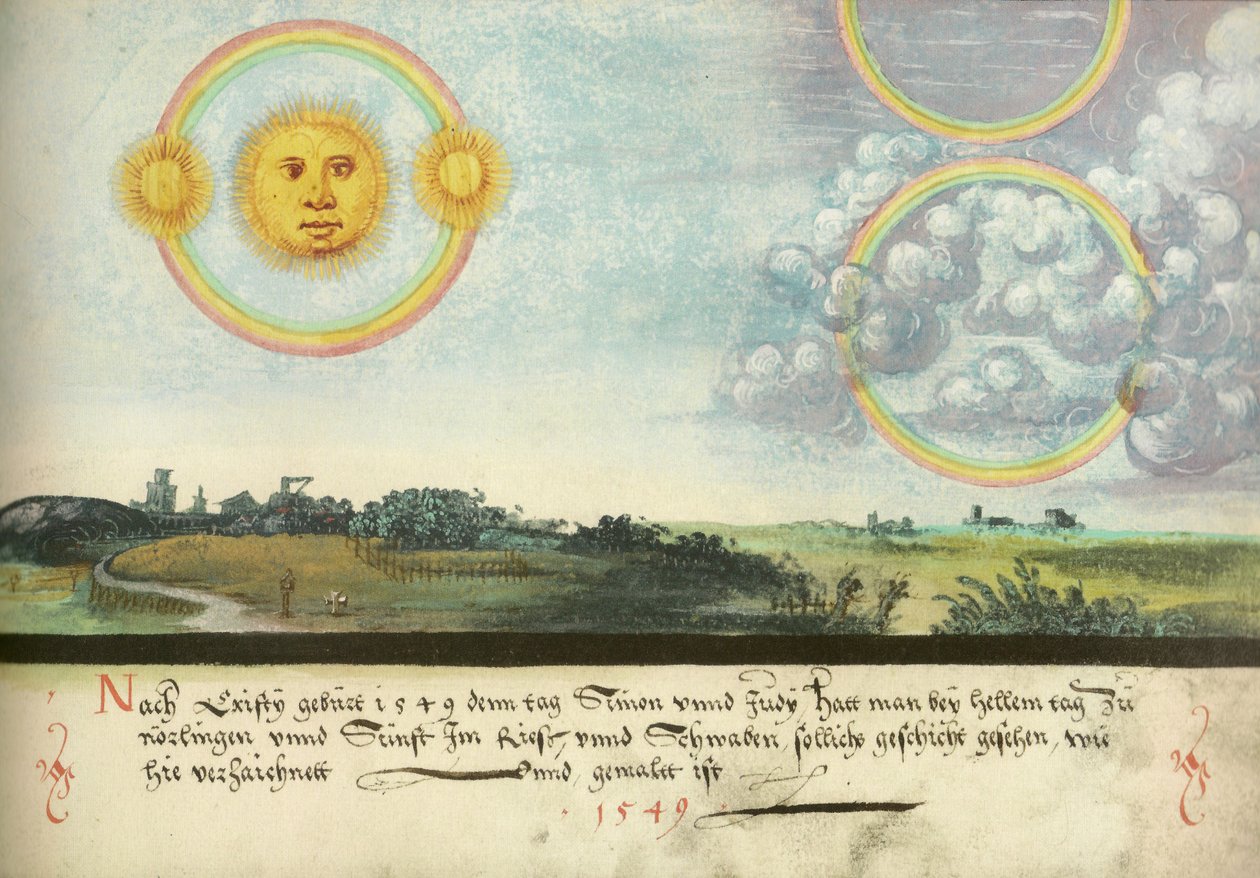 Nach Cristÿ gebürt 1549 denn tag Simon vnnd Judÿ, hatt man beÿ hellem tag Zů
nörlingen vnnd Sünst Im Riess, vnnd Schwaben, sollichs geschicht gesehen, wie
hie verzaichnett Vnnd, gemaltt ist
· 1549 ·